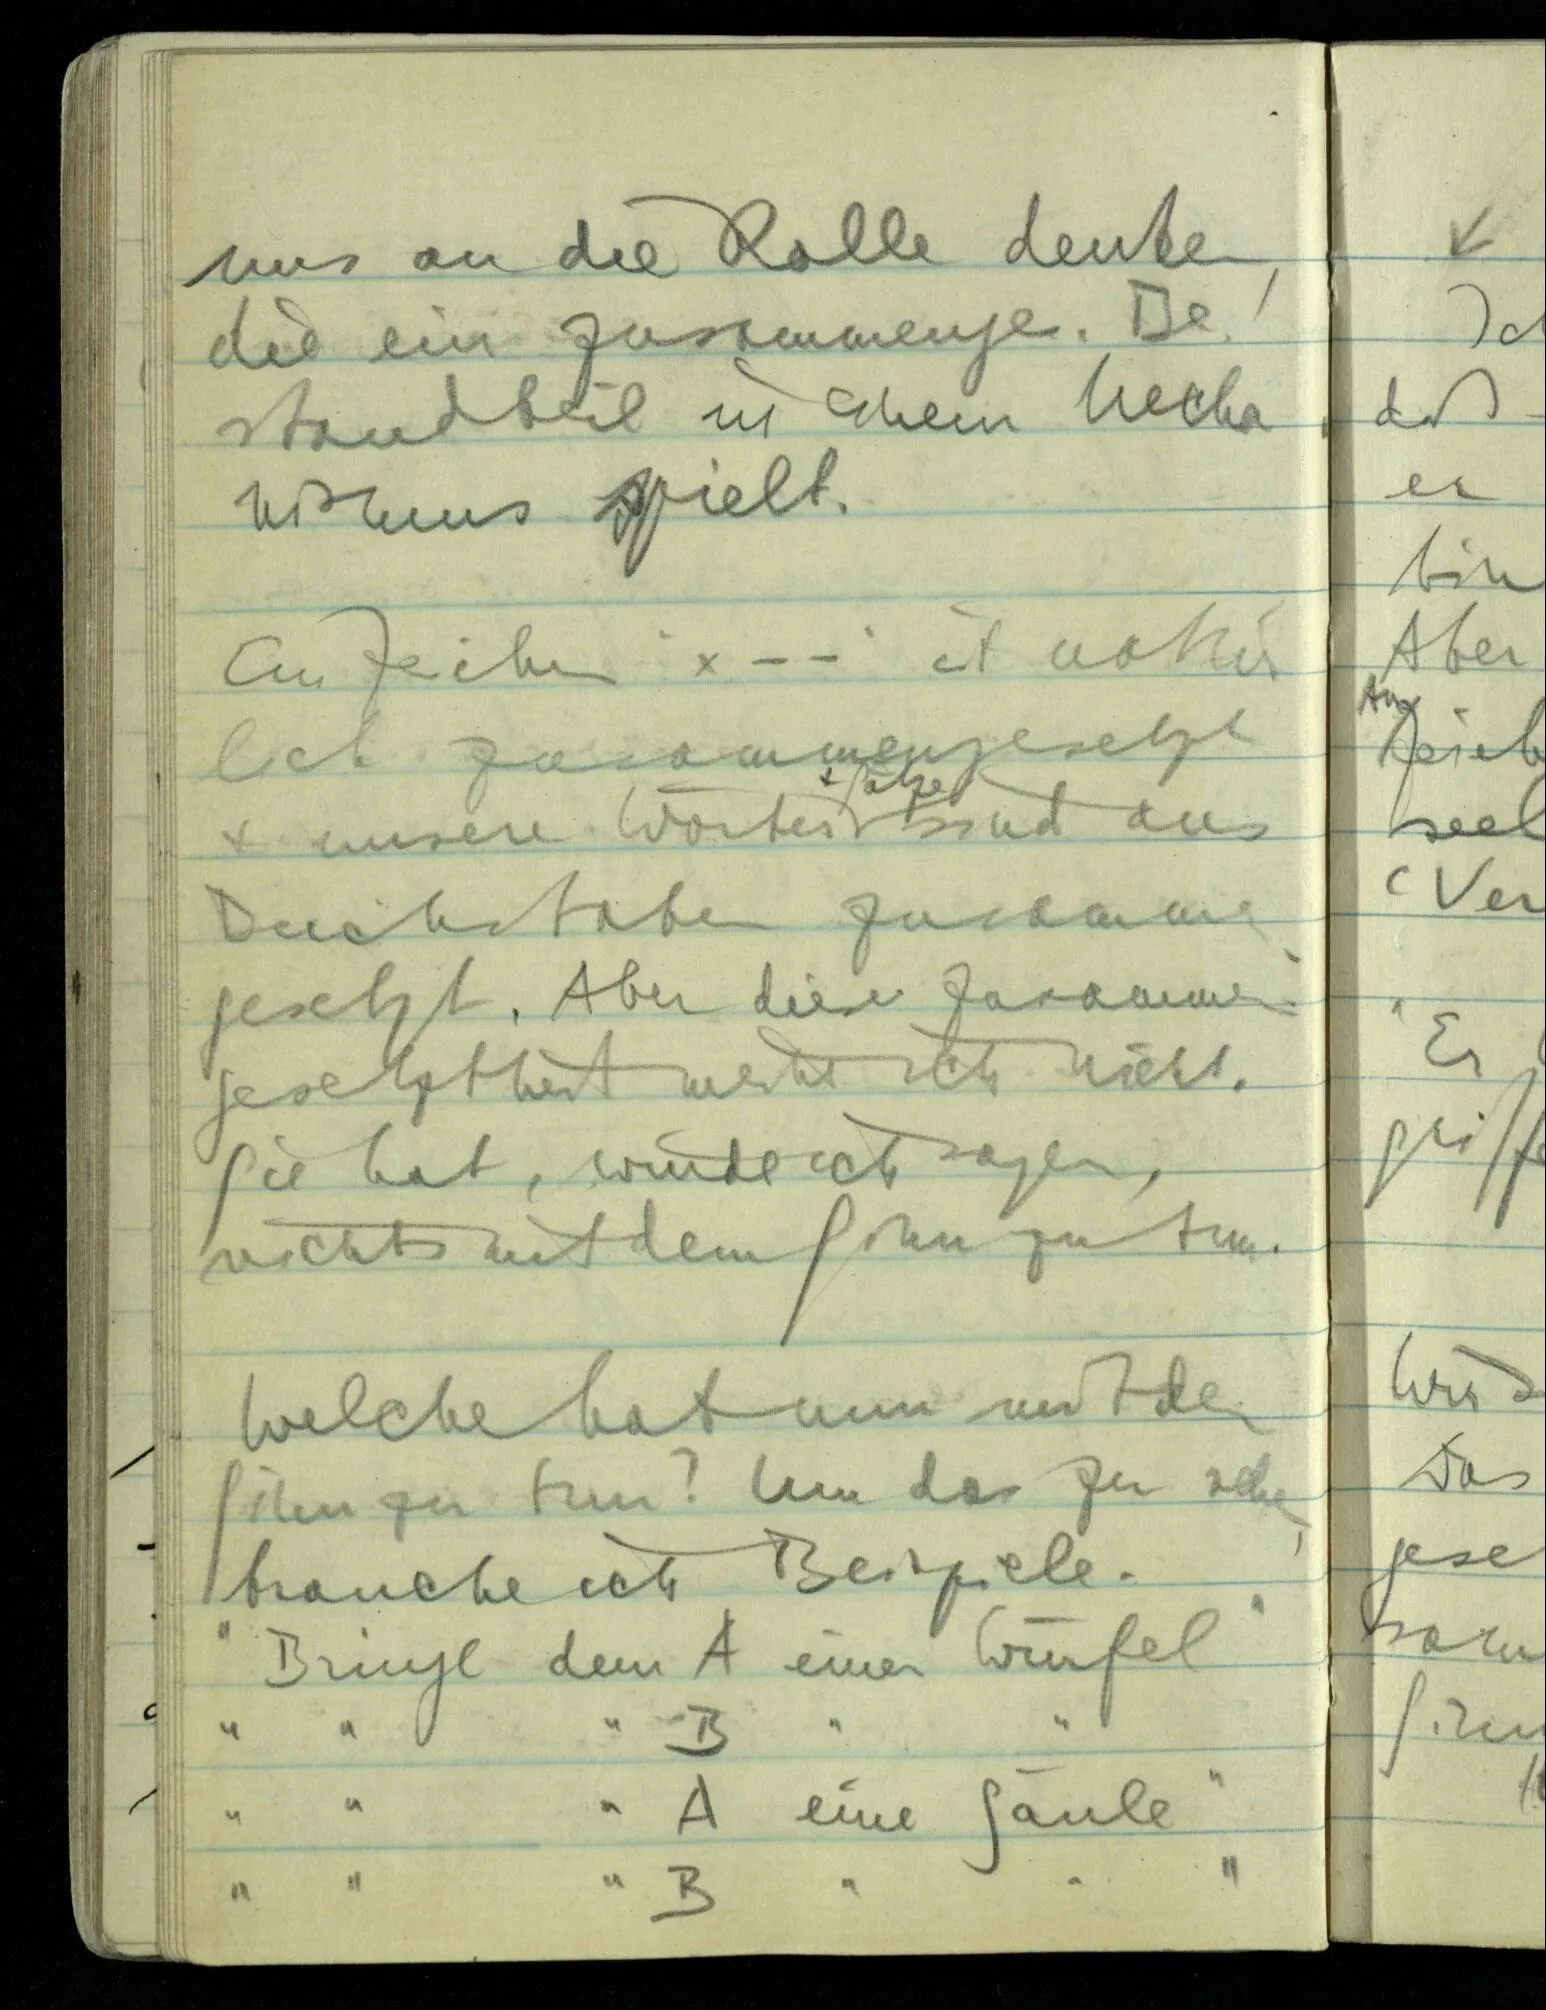 uns an die Rolle denken,
die ein zusammenges. Be
standteil in einem Mecha
nismus spielt.
Ein Zeichen '× – –' ist natür
lich zusammengesetzt
+ unsere Wörter + Sätze sind aus
Buchstaben zusammen
gesetzt. Aber diese Zusammen
gesetztheit meine ich nicht.
Sie hat, würde ich sagen,
nichts mit dem Sinn zu tun.
Welche hat nun mit dem
Sinn zu tun? Um das zu sehen,
brauche ich Beispiele.
"Bringt dem A einen Würfel"
" " " B " "
" " " A eine Säule"
" " " B " " "
↙
Ich
daß
er
bin
Aber
An
Zeich
seel
(Ver
"Er
griffe
Wird
Das
gese
Sinn